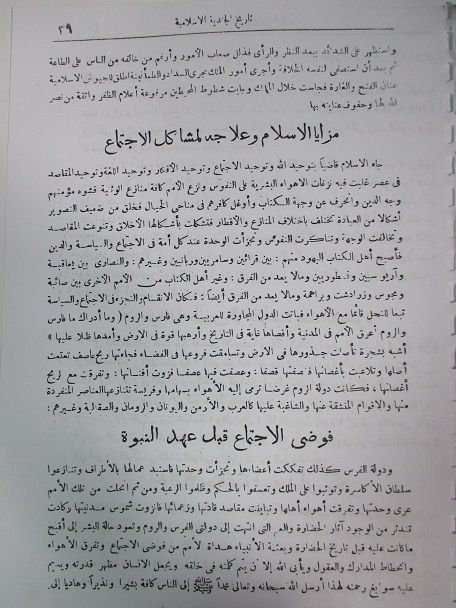 تاريخ الجندية الاسلامية ٣٩
واستظهر على الشدائد ببعد النظر والرأى فذلل صعاب الأمور وأرغم من خالفه من الناس على الطاعة
ثم بعد أن استصفى لنفسه الخلافة وأجرى أمور الملك مجرى السداد والطمأنينة أطلق للجيوش الاسلامية
عنان الفتح والغارة فجاست خلال الممالك وبلغت شطوط المحيطين مرفوعة أعلام الظفر واثقة من نصر
الله لها وحفوف عنايته بها
مزايا الاسلام وعلاجه لمشاكل الاجتماع
جاء الاسلام قاضياً بتوحيد الله وتوحيد الاجتماع وتوحيد الافكار وتوحيد اللغة وتوحيد المقاصد
فى عصر غلبت فيه نزغات الاهواء البشرية على النفوس ونزع الأمم كافة منازع الوثنية فشوه مؤمنهم
وجه الدين وانحرف عن وجهة الكتاب وأوغل كافرهم فى مناحى الخيال فخلق من ضعيف التصوير
أشكالا من العبادة تختلف باختلاف المنازع والأقطار فتشكلت بأشكالها الاخلاق وتنوعت المقاصد
وتخالفت الوجهة وتناكرت النفوس وتجزأت الوحدة عند كل أمة فى الاجتماع والسياسة والدين
فأصبح أهل الكتاب اليهود منهم : بين قرائين وسامريين وربانيين وغيرهم : والنصارى بين يعاقبة
وآريوسيين ونسطوريين ومالا يعد من الفرق : وغير أهل الكتاب من الأمم الاخرى بين صائبة
ومجوس وزرادشت وبراهمة ومالا يعد من الفرق أيضاً : فكان الانقسام والتجزء فى الاجتماع والسياسة
تبعا للنحل قائما مع الأهواء فباتت الدول المجاورة للعربية وهى فارس والروم ( وما أدراك ما فارس
والروم أعرق الأمم فى المدنية وأقصاها غاية فى التاريخ وأرهبها قوة فى الارض وأمدها ظلا عليها )
أشبه بشجرة تأصلت جذورها فى الارض وتسامقت فروعها فى الفضاء فجاءتها ريح عاصف تعتعت
أصلها وتلاعبت بأغصانها فصفتها قصفا : وعصفت فيها عصفا فزوت أفنانها : وتفرقت مع الريح
أغصانها ، فكانت دولة الروم غرضا ترمى إليه الأهواء بسهامها وفريسة تتنازعها العناصر المنفردة
منها والاقوام المنشقة عنها والشاغبة عليها كالعرب والأرمن واليونان والرومان والصقالبة وغيرهم :
فوضى الاجتماع قبل عهد النبوة
ودولة الفرس كذلك تفككت أعضاءها وتجزأت وحدتها فاستبد عمالها بالأطراف وتنازعوا
سلطان الأكاسرة وتوثبوا على الملك وتعسفوا بالحكم وظلموا الرعية ومن ثم انحلت من تلك الأمم
عرى وحدتها وتفرقت أهواء أهلها وتباينت مقاصد قادتها وزعمائها فانزوت شموس مدنيتها وكادت
تندثر من الوجود آثار الحضارة والعلم التى انتهت إلى دولتى الفرس والروم وتعود حالة البشر إلى أقبح
ماكانت عليه قبل تاريخ الحضارة وبعثة الأنبياء هداة لأمم من فوضى الاجتماع وتفرق الأهواء
وانحطاط المدارك والعقول ويأبى الله إلا أن يتم كلمته فى خلقه ويجعل الانسان مظهر قدرته ويسبغ
عليه سوابغ رحمته لهذا أرسل الله سبحانه وتعالى محمداً ﷺ إلى الناس كافة بشيرا ونذيراً وهاديا إلى